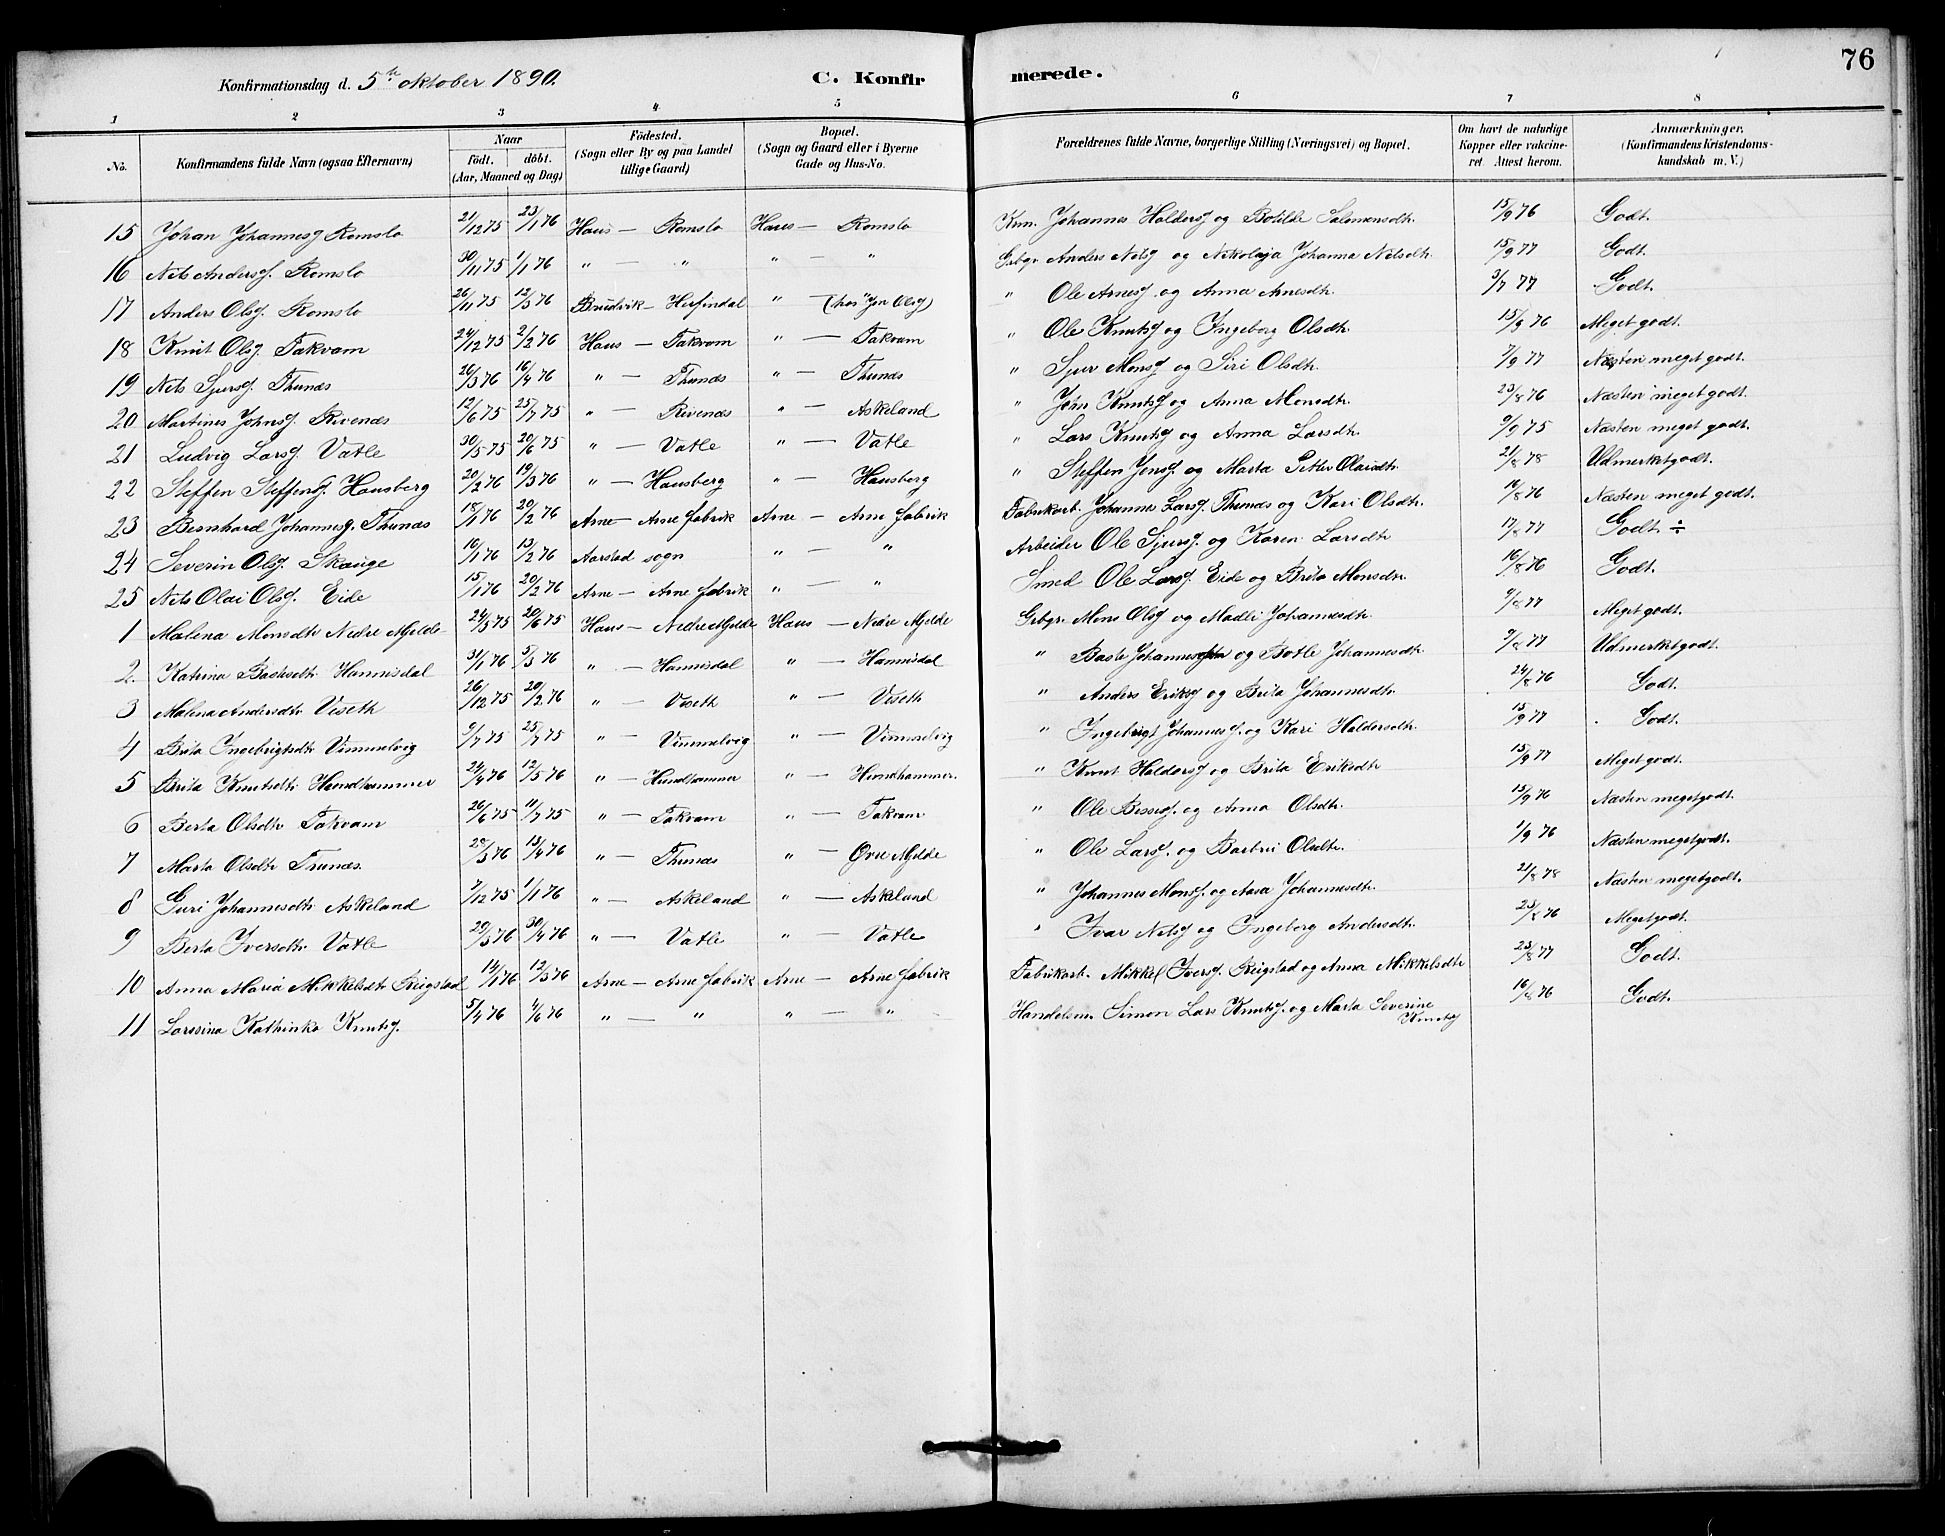 76
Konfirmationsdag d. 5te oktober 1890. C. Konfirmerede.
1 2 3 4 5 6 7 8
No. Konfirmandens fulde Navn (ogsaa Efternavn) Naar Födt. döbt. (Aar, Maaned og Dag) Födested. (Sogn eller By og paa Landet tillige Gaard) Bopæl. (Sogn og Gaard eller i Byerne Gade og Hus-No. Forældrenes fulde Navne, borgerlige Stilling (Næringsvei) og Bopæl. Om havt de naturlige Kopper eller vakcineret. Attest herom. Anmærkninger. (Konfirmandens Kristendomskundskab m. V.)
15 Johan Johannesf Romslo 21/12 75 23/1 76 Haus — Romslo Haus — Romslo Johannes Haldorsf og Botilde Salomonsdtr. 15/9 76 Godt.
16 Nils Andersf. Romslo 30/11 75 1/1 76 " — " " — " Grbgr. Anders Nilsf og Nikolaja Johanna Nilsdtr. 15/9 77 Godt.
17 Anders Olsf. Romslo 26/11 75 12/3 76 Brudvik — Herfindal " — (hos Jon Olsf) " Ole Arnesf. og Anna Arnesdtr. 3/7 77 Godt.
18 Knut Olsf. Takvam 24/12 75 2/2 76 Haus — Takvam " — Takvam " Ole Knutsf og Ingeborg Olsdtr. 15/9 76 Meget godt.
19 Nils Sjursf. Thunæs 26/3 76 16/4 76 " — Thunæs " — Thunæs " Sjur Monsf og Siri Olsdtr. 7/9 77 Næsten meget godt.
20 Martines Johnsf. Rivenæs 12/6 75 25/7 75 " — Rivenæs " — Askeland " John Knutsf og Anna Monsdtr. 23/8 76 Næsten meget godt.
21 Ludvig Larsf. Vatle 30/5 75 20/6 75 " — Vatle " — Vatle " Lars Knutsf og Anna Larsdtr. 9/9 75 Næsten meget godt.
22 Steffen Steffensf. Hausberg 20/2 76 19/3 76 " — Hausberg " — Hausberg " Steffen Jensf og Marta Petter Olaisdtr. 21/8 78 Udmerket godt.
23 Bernhard Johannesf. Thunæs 18/1 76 20/2 76 Arne — Arne fabrik Arne — Arne fabrik Fabrikarb. Johannes Larsf. Thunæs og Kari Olsdtr. 16/8 76 Næsten meget godt.
24 Severin Olsf. Skauge 16/1 76 13/2 76 Aarstad sogn " — " Arbeider Ole Sjursf. og Karen Larsdtr 17/8 77 Godt ÷
25 Nils Olai Olsf. Eide 15/1 76 20/2 76 Arne — Arne fabrik " — " Smed Ole Larsf. Eide og Brita Monsdtr. 16/8 76 Godt.
1 Malena Monsdtr Nedre Mjelde 24/5 75 20/6 75 Haus — Nedre Mjelde Haus — Nedre Mjelde Grbgr. Mons Olsf og Madli Johannesdtr. 9/8 77 Meget godt.
2 Katrina Bastesdtr. Hannisdal 31/1 76 5/3 76 " — Hannisdal " — Hannisdal " Baste Johannes og Botle Johannesdtr. 9/8 77 Udmerket godt.
3 Malena Andersdtr. Viseth 26/12 75 20/2 76 " — Viseth " — Viseth " Anders Eriksf og Brita Johannesdtr. 24/8 76 Godt.
4 Brita Ingebrigtsdtr. Vimmelvig 9/7 75 25/7 75 " — Vimmelvig " — Vimmelvig " Ingebrigt Johannesf. og Kari Haldorsdtr. 15/9 77 Godt.
5 Brita Knutsdtr. Hundhammer 24/4 76 12/5 76 " — Hundhammer " — Hundhammer. " Knut Haldorsf og Brita Eriksdtr 15/9 77 Meget godt.
6 Berta Olsdtr Takvam 26/6 75 11/7 75 " — Takvam " — Takvam " Ole Bessesf. og Anna Olsdtr. 15/9 76 Næsten meget godt.
7 Marta Olsdtr Thunæs. 29/3 76 13/4 76 " — Thunæs " — Øvre Mjelde " Ole Larsf. og Barbru Olsdtr. 1/9 76 Næsten meget godt.
8 Guri Johannesdtr. Askeland 7/12 75 1/1 76 " — Askeland " — Askeland " Johannes Monsf. og Aasa Johannesdtr. 21/8 78 Næsten meget godt.
9 Berta Iversdtr. Vatle 29/3 76 30/4 76 " — Vatle " — Vatle " Ivar Nilsf og Ingeborg Andersdtr. 23/8 76 Meget godt.
10 Anna Maria Mikkelsdtr Reigstad 14/1 76 12/3 76 Arne — Arne fabrik Arne — Arne fabrik Fabrikarb. Mikkel Iversf. Reigstad og Anna Mikkelsdtr 23/8 77 Godt.
11 Larssina Kathinka Knutsf. 5/4 76 4/6 76 " — " " — " Handelsm. Simon Lars Knutsf. og Marta Severine Knutsf 16/8 76 Godt.